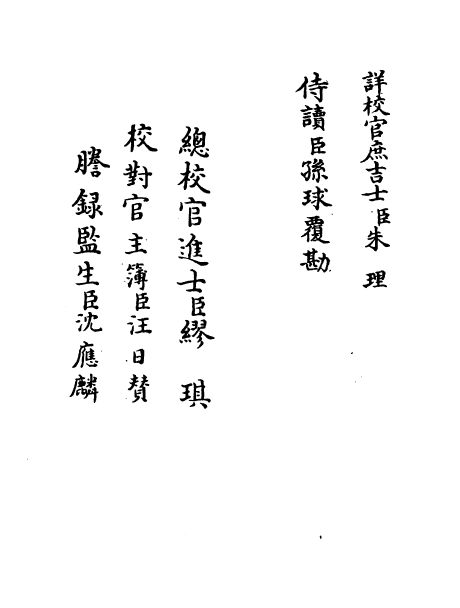 詳校官庶吉士臣朱理
侍讀臣孫球覆勘
總校官進士臣繆琪
校對官主簿臣汪日贊
謄録監生臣沈應麟